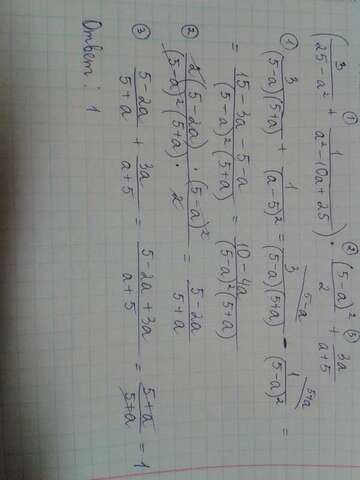 (3/(25-a²) + 1/(a²-10a+25)) · (5-a)²/2 + 3a/(a+5)
① 3/((5-a)(5+a)) + 1/(a-5)² = 3/((5-a)(5+a)) - 1/(5-a)² =
= (15-3a-5-a)/((5-a)²(5+a)) = (10-4a)/((5-a)²(5+a))
② 2(5-2a)/((5-a)²(5+a)) · (5-a)²/2 = (5-2a)/(5+a)
③ (5-2a)/(5+a) + 3a/(a+5) = (5-2a+3a)/(a+5) = (5+a)/(5+a) = 1
Ответ: 1